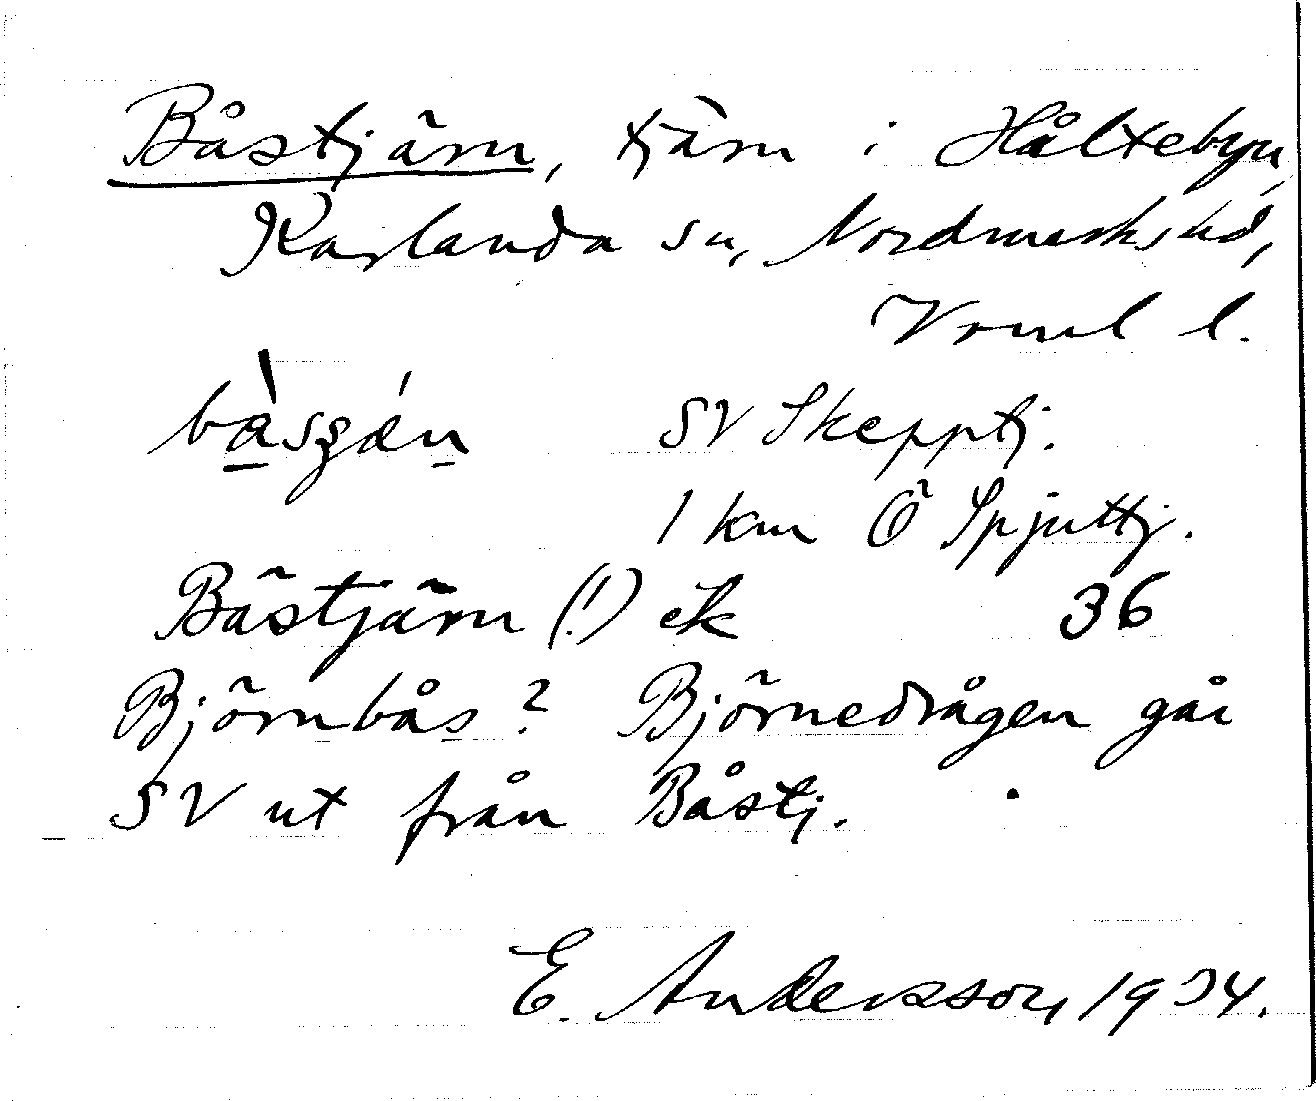 Båstjärn, tjärn i Håltebyn,
Karlanda sn, Nordmarks hd,
Vrml l.
SV Skepptj.
1 km Ö Spjuttj.
Bästjärn (!) ek 36
Björnbås? Björnedrågen går
SV ut från Båstj.
E. Andersson 1934.